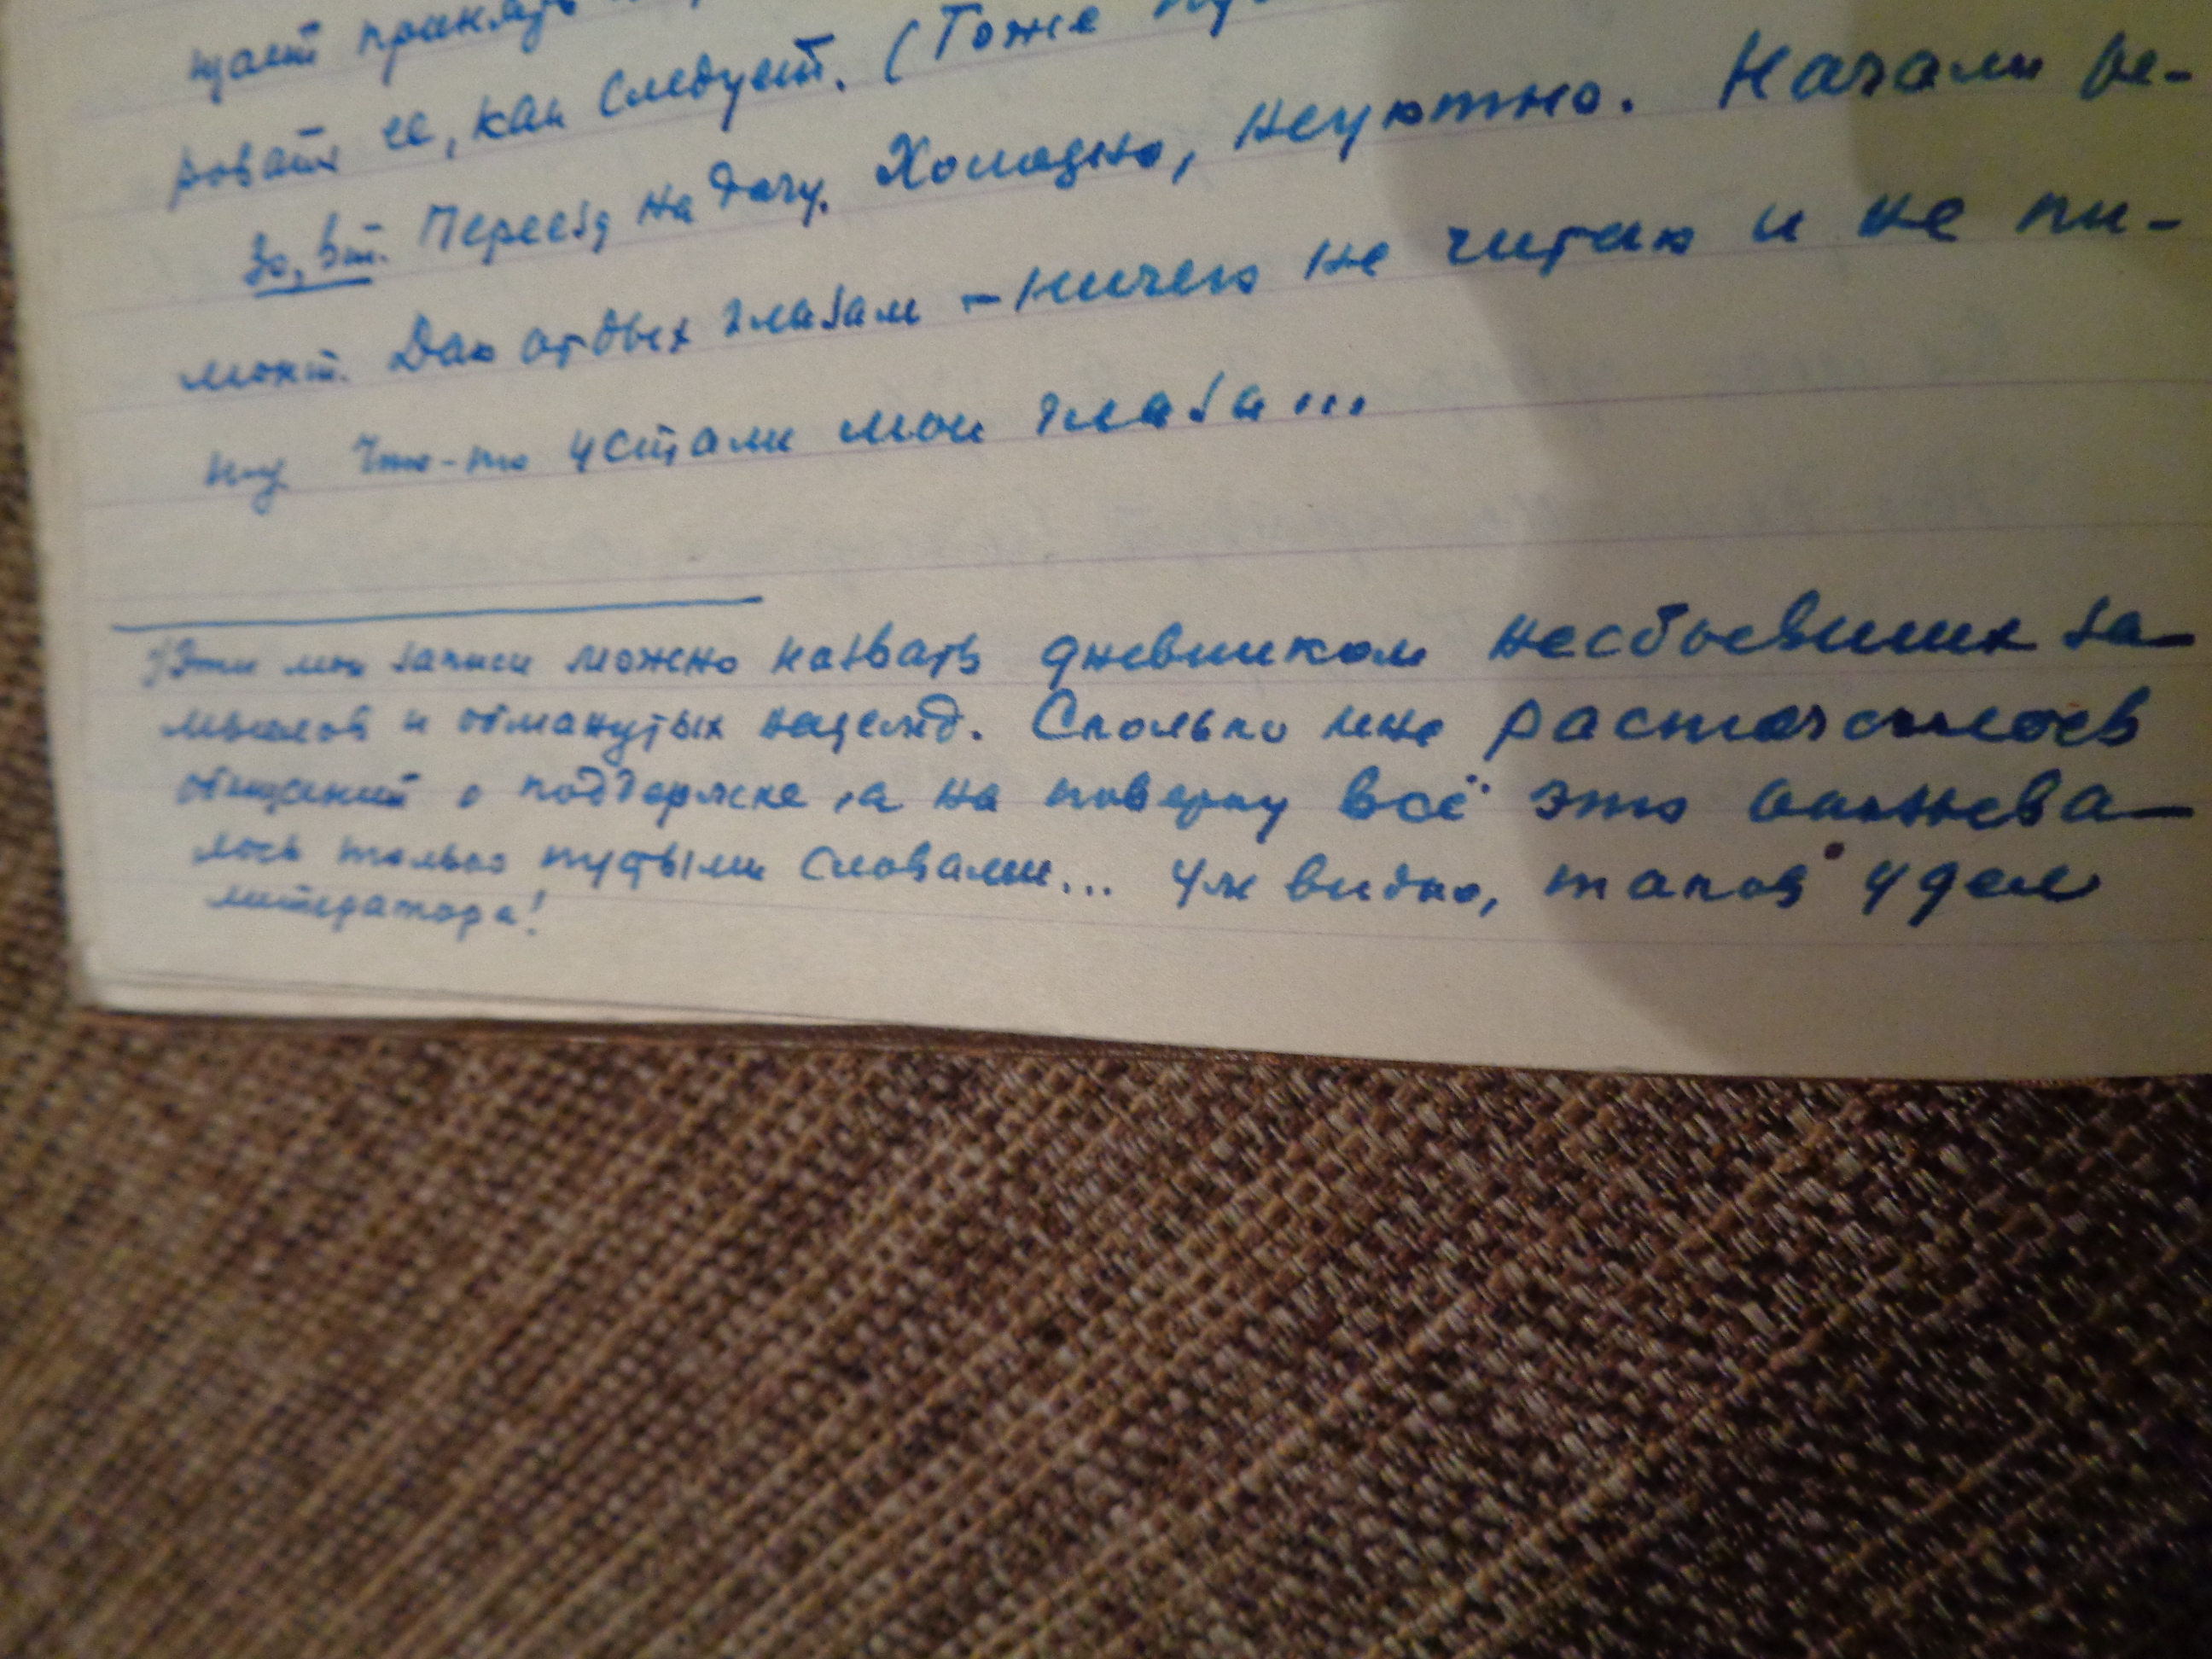 щает принять
ровать ее, как следует. (Тоже
30, вт. Переезд на дачу. Холодно, неуютно. Начали ре-
монт. Даю отдых глазам – ничего не читаю и не пи-
шу Что-то устали мои глаза...
1) Эти мои записи можно назвать дневником несбывшихся за-
мыслов и обманутых надежд. Сколько мне расточалось
обещаний о поддержке, а на поверку всё это оказыва-
лось только пустыми словами... Уж видно, таков удел
литератора!